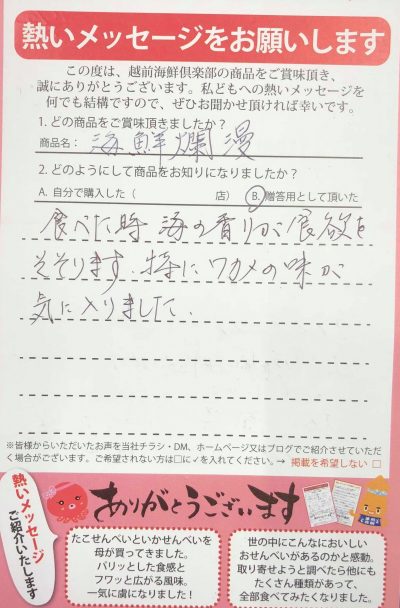 熱いメッセージをお願いします
この度は、越前海鮮倶楽部の商品をご賞味頂き、
誠にありがとうございます。私どもへの熱いメッセージを
何でも結構ですので、ぜひお聞かせ頂ければ幸いです。
1. どの商品をご賞味頂きましたか？
商品名： 海鮮爛漫
2. どのようにして商品をお知りになりましたか？
A. 自分で購入した（ 店） B. 贈答用として頂いた
食べた時 海の香りが食欲を
そそります。特にワカメの味が
気に入りました。
※皆様からいただいたお声を当社チラシ・DM、ホームページ又はブログでご紹介させていただ
く場合がございます。ご希望されない方は□に✓を入れてください。→ 掲載を希望しない □
熱いメッセージ
ご紹介いたします
ありがとうございます
たこせんべいといかせんべいを
母が買ってきました。
パリッとした食感と
フワッと広がる風味。
一気に虜になりました！
世の中にこんなにおいしい
おせんべいがあるのかと感動。
取り寄せようと調べたら他にも
たくさん種類があって、
全部食べてみたくなりました。